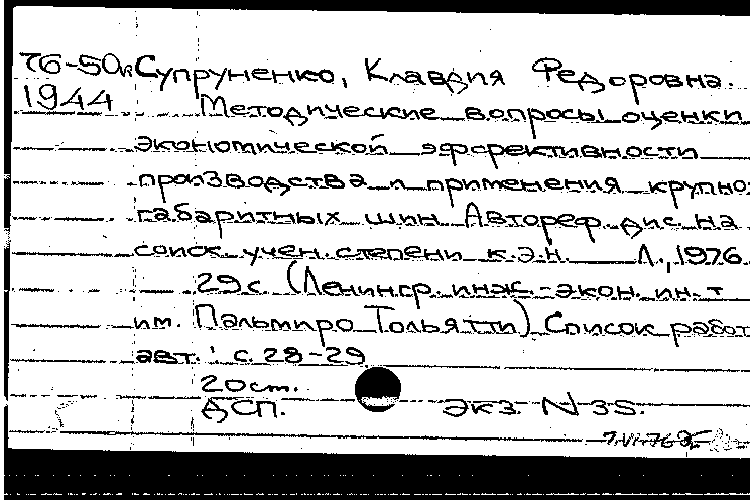 76-50к Супруненко, Клавдия Федоровна.
1944 Методические вопросы оценки
экономической эффективности
производства и применения крупно-
габаритных шин. Автореф. дис. на
соиск. учен. степени к.э.н. Л., 1976.
29 с. (Ленингр. инж.-экон. ин-т
им. Пальмиро Тольятти) Список работ
авт.: с. 28-29
20 ст.
ДСП. экз. N 35.
7.VI.76